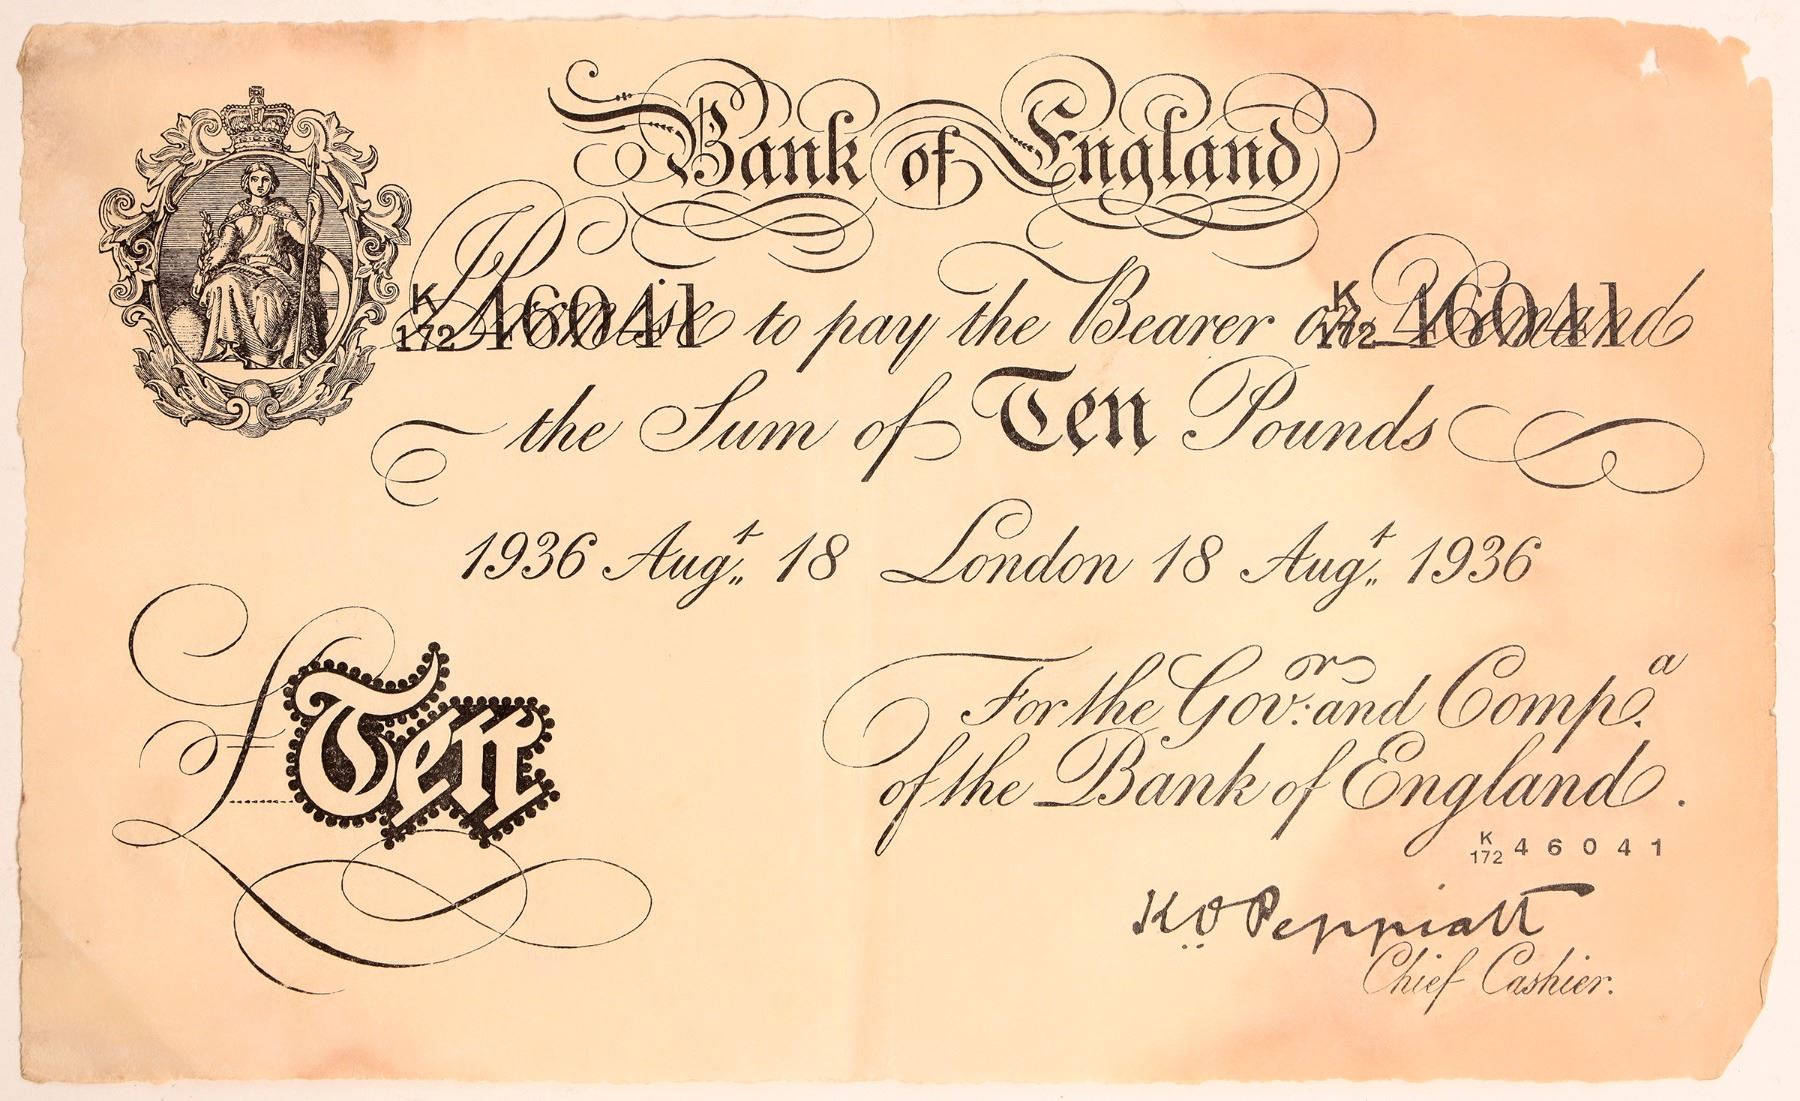 Bank of England
I Promise to pay the Bearer on Demand
K
172 46041
K
172 46041
the Sum of Ten Pounds
1936 Augt 18 London 18 Augt 1936
£Ten
For the Govr: and Compa.
of the Bank of England.
K
172 46041
K O Peppiatt
Chief Cashier.